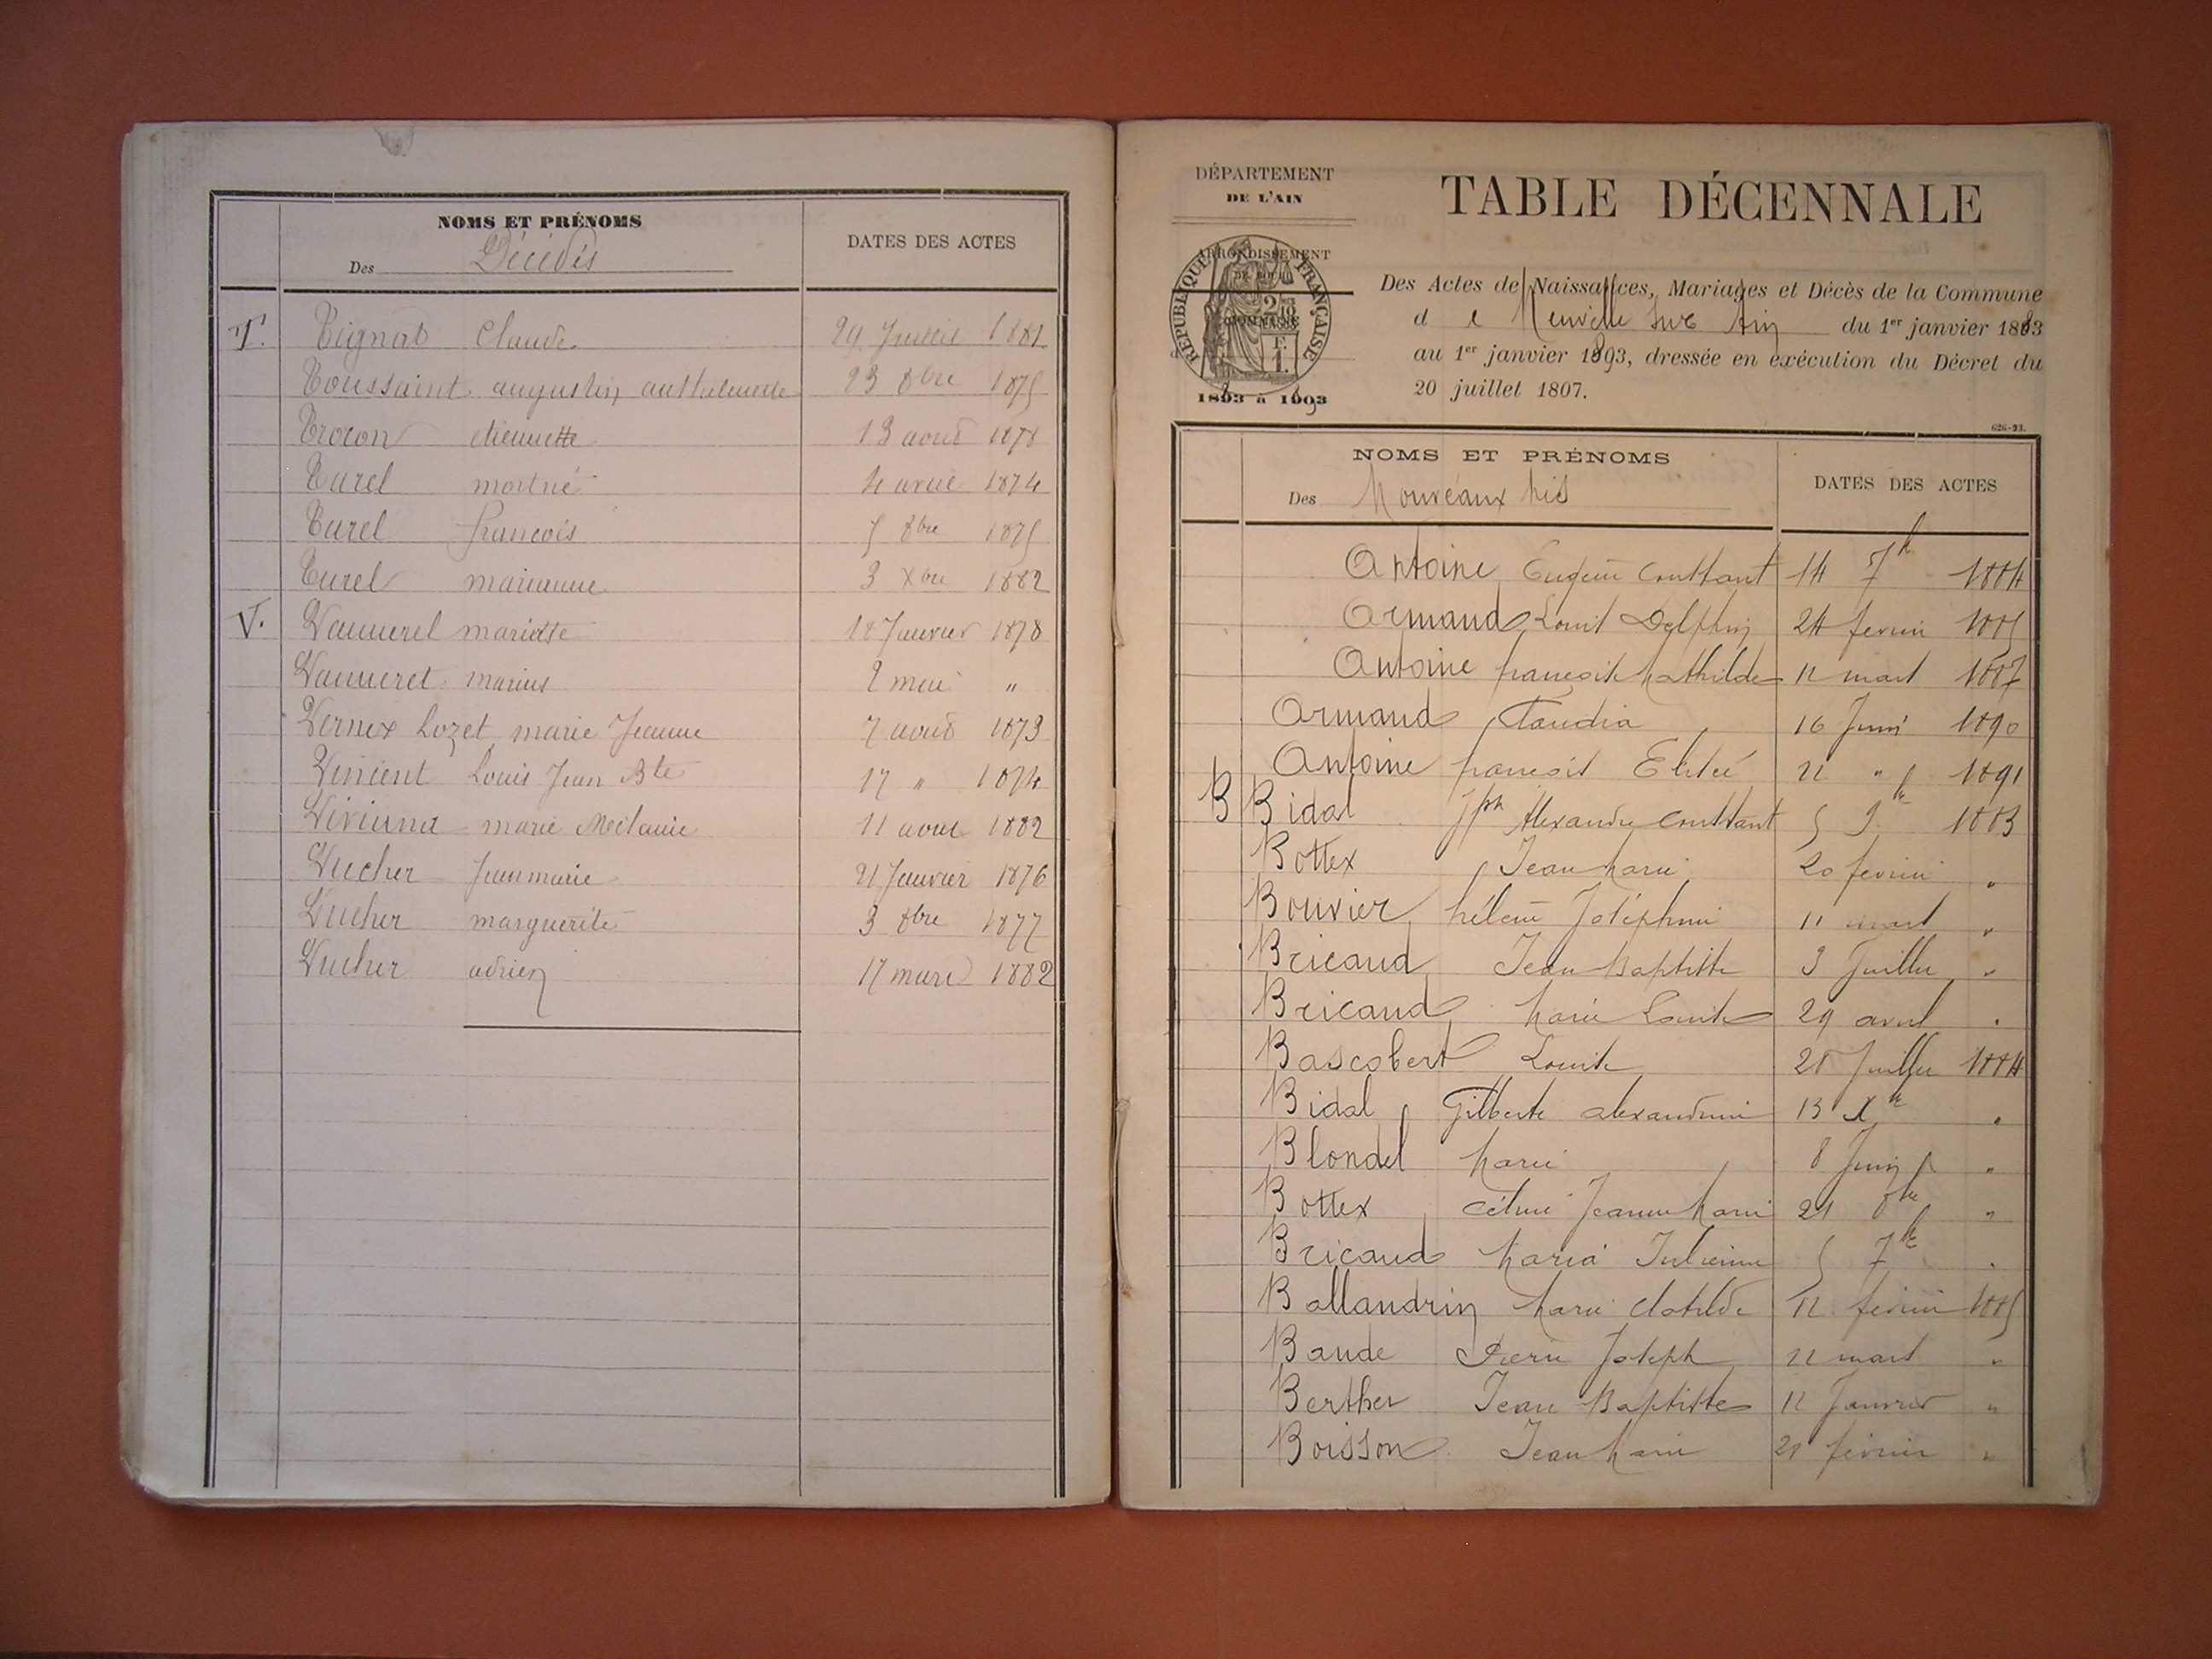 NOMS ET PRÉNOMS
Des Décédés
DATES DES ACTES
T. Tignat Claude 29 Juillet 1881
Toussaint augustin anthelmette 23 8bre 1875
Trocon étiennette 13 août 1878
Turel mort né 4 avril 1874
Turel françois 5 8bre 1875
Turel marianne 3 Xbre 1882
V. Vannerel mariette 18 Janvier 1878
Vanneret marius 2 mai "
Vernex Lozet marie Jeanne 7 août 1873
Vincent Louis Jean Bte 17 " 1874
Marie Mélanie 11 aout 1882
Vucher Jean marie 21 Janvier 1876
Vucher marguerite 3 8bre 1877
Vucher adrien 17 mars 1882
DÉPARTEMENT
DE L'AIN
ARRONDISSEMENT
COMMUNE
RÉPUBLIQUE FRANÇAISE
1883 à 1893
TABLE DÉCENNALE
Des Actes de Naissances, Mariages et Décès de la Commune
d e Neuville sur Ain du 1er janvier 1883
au 1er janvier 1893, dressée en exécution du Décret du
20 juillet 1807.
626-93.
NOMS ET PRÉNOMS
Des Nouveaux nés
DATES DES ACTES
Antoine Eugène Constant 14 7b 1884
Armand Louis Delphin 24 fevrier 1885
Antoine françoise Mathilde 12 mars 1887
Armand Claudia 16 Juin 1890
Antoine françois Elisée 22 " 1891
B Bidal Jph Alexandre Constant 5 9b 1883
Bottex Jean Marie 20 fevrier "
Bouvier hélène Joséphine 11 mars "
Bricaud Jean Baptiste 3 Juillet "
Bricaud Marie Louise 29 avril "
Bascobert Louise 28 Juillet 1884
Bidal Gilberte alexandrine 13 Xb "
Blondel Marie 8 Juin "
Bottex Céline Jeanne Marie 21 8b "
Bricaud Maria Julienne 5 7b "
Ballandrin Marie Clotilde 12 fevrier 1885
Baude Pierre Joseph 22 mars "
Berthet Jean Baptiste 12 Janvier "
Boisson Jean Marie 21 fevrier "